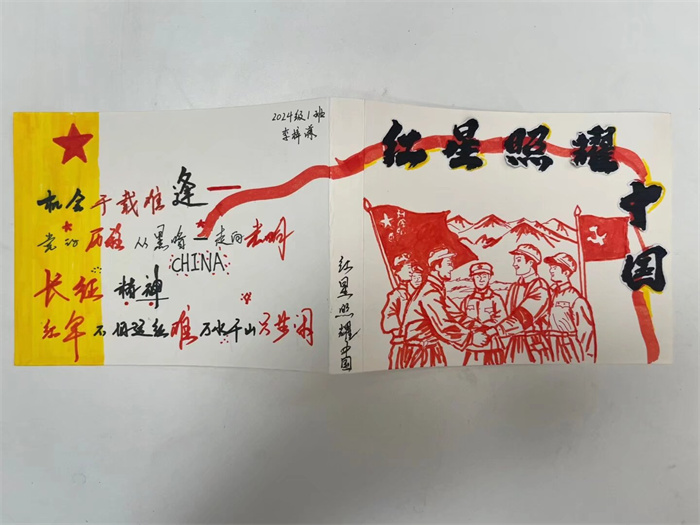 2024级1班
李梓
机会千载难逢
党的历程从黑暗—走向光明
CHINA
长征精神
红军不怕远征难万水千山只等闲
红星照耀中国
红星照耀中国